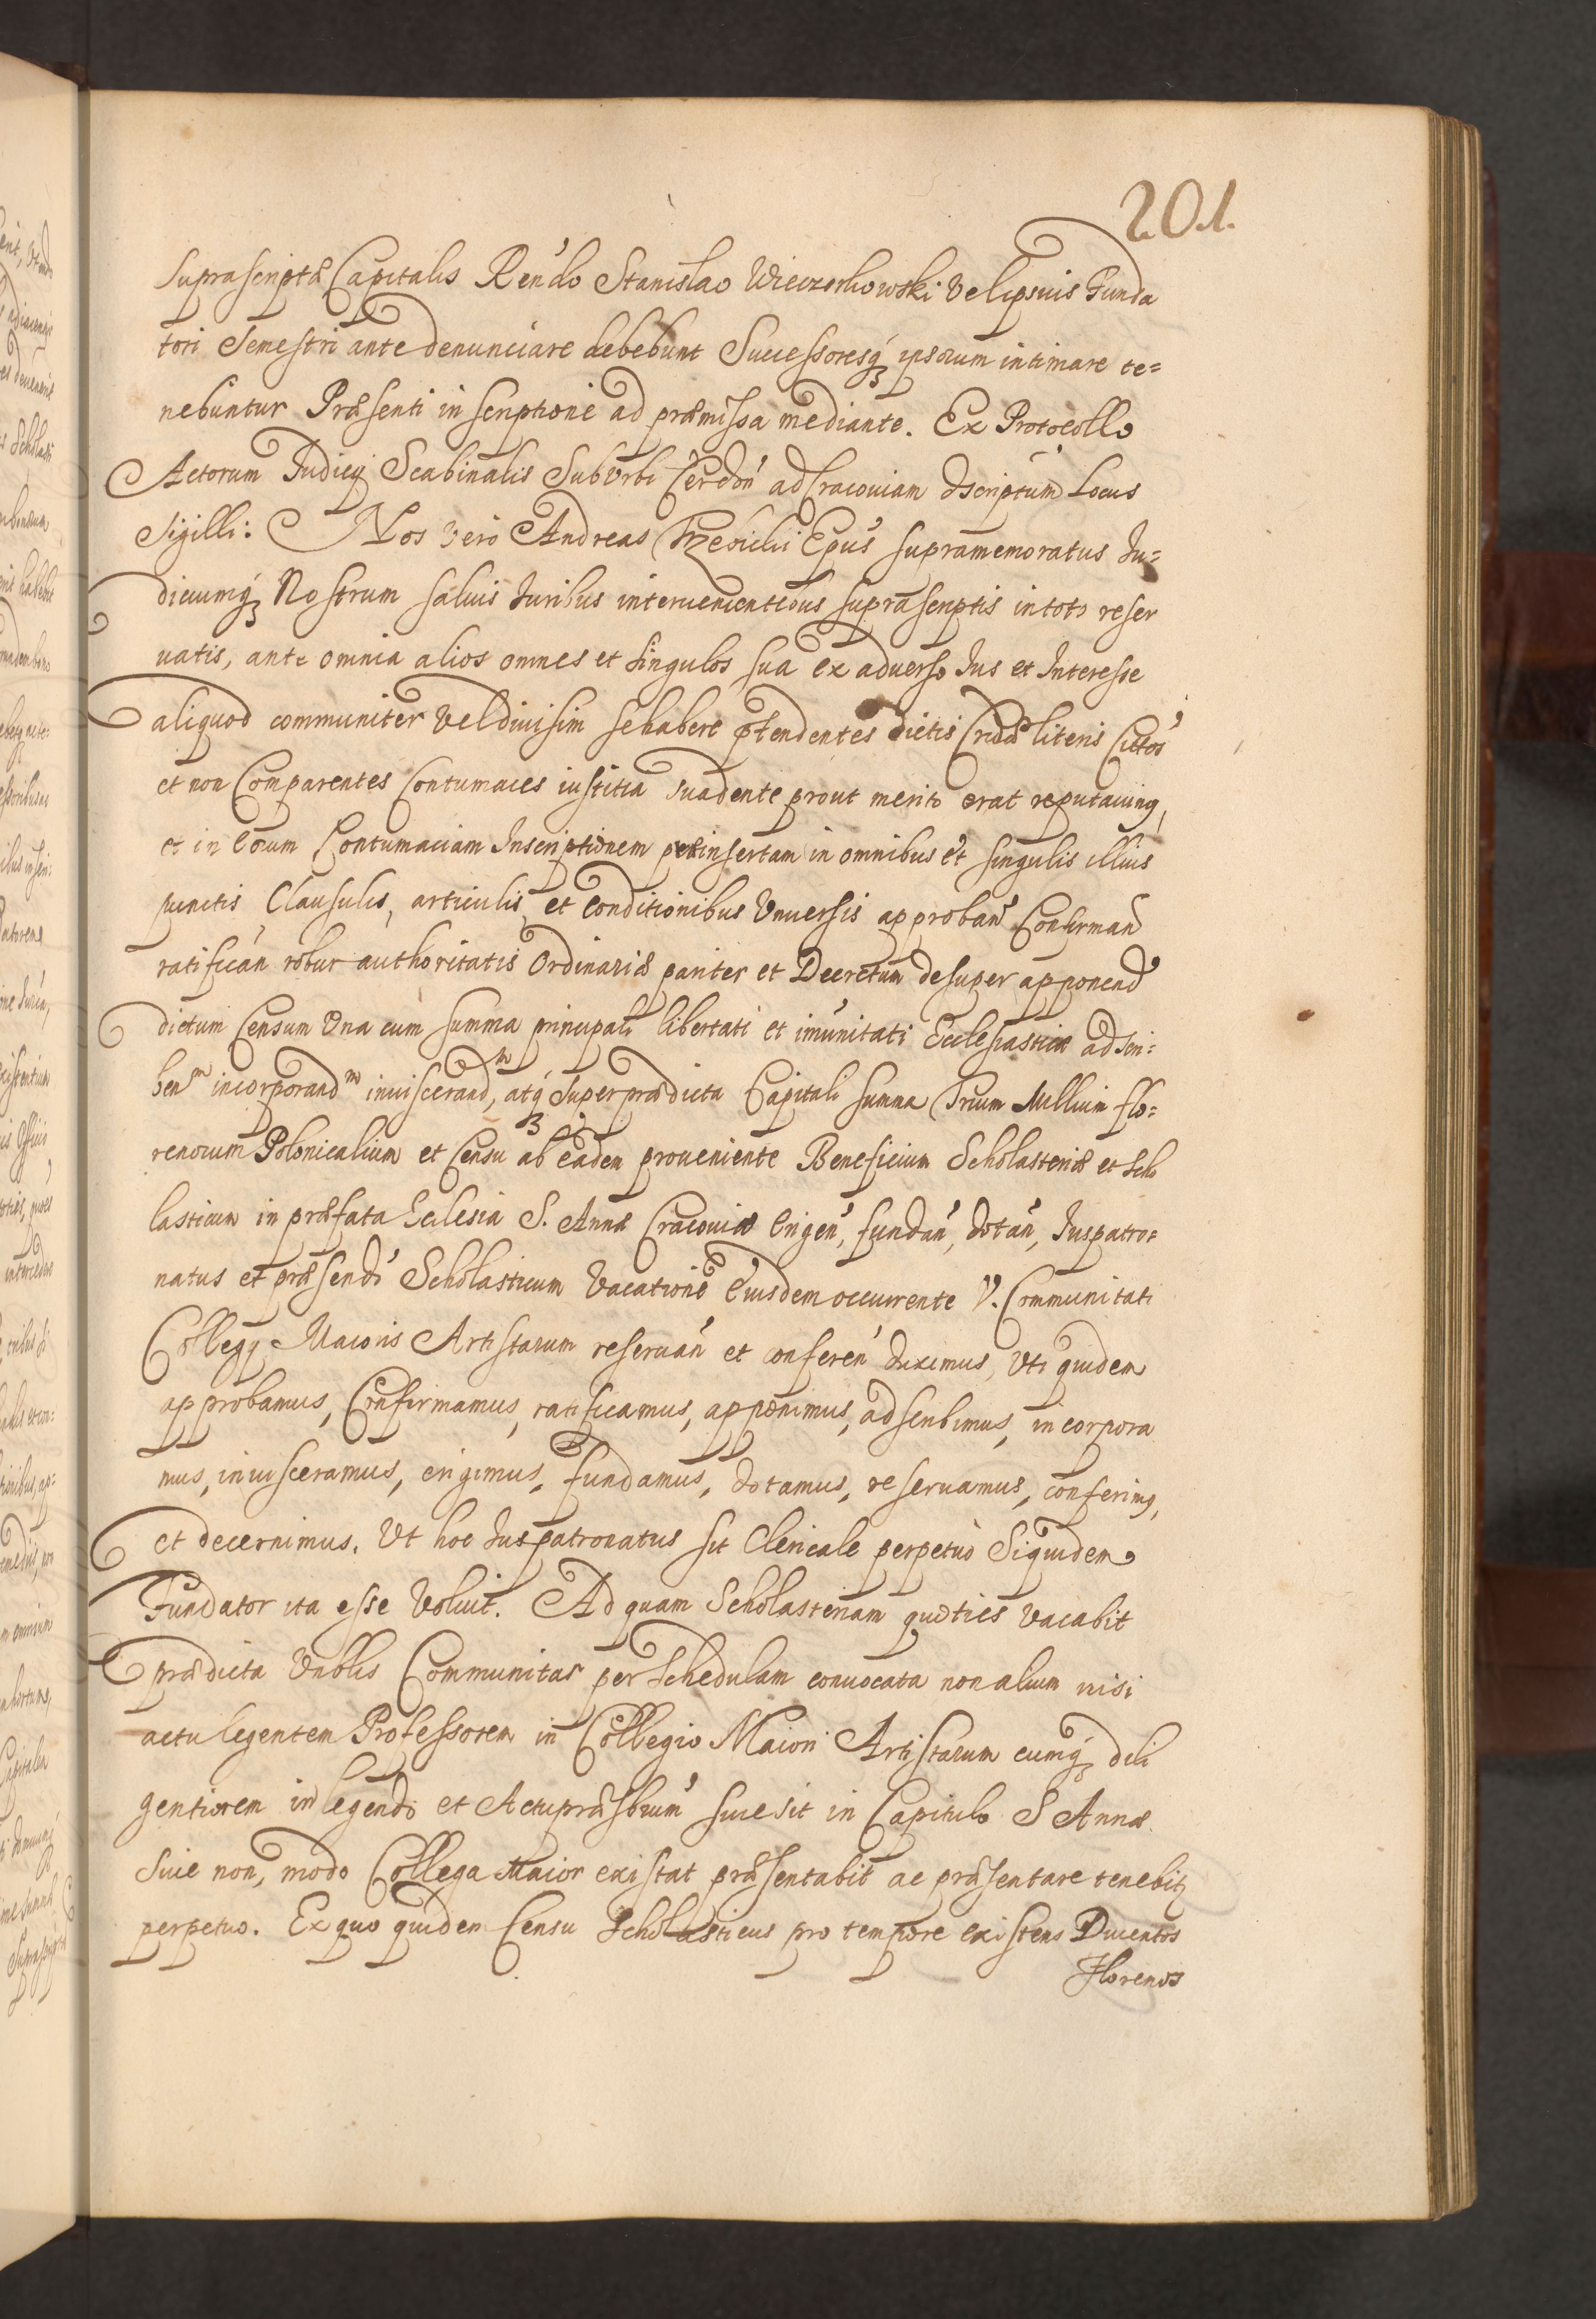 201.
suprascriptæ Capitalis Ren̄do Stanislao Wieczorkowski vel ipsius Funda
tori Semestri ante denunciare debebunt Successoresq́ʒ ipsorum intimare te=
nebuntur Præsenti inscriptione ad præmissa mediante. Ex Protocollo
Actorum Judicij Scabinalis Suburbi Cerdōn ad Cracouiam dscriptum Locus
Sigilli: Nos vero Andreas Trzebicki Ep̄us supramemoratus Ju=
diciumq́ʒ Nostrum saluis Juribus interuenientibus suprascriptis in toto reser
uatis, ante omnia alios omnes et singulos sua ex aduerso Jus et Interesse
aliquod communiter vel diuisim se habere p̄tendentes dictis Cridæ literis Cittos
et non Comparentes Contumaces iustitia suadente prout merito erat reputauimq,
et in eorum Contumaciam Inscriptionem præinsertam in omnibus et singulis illius
punctis Clausulis, articulis, et conditionibus Vniuersis approban̄ Confirman̄
ratifican̄ robur authoritatis Ordinariæ pariter et Decretum desuper apponend
dictum Censum Vna cum summa principali libertati et im̄unitati Ecclesiasticæ adscri:
benᵐ incorporandᵐ inuiscerandᵐ, atq́ʒ super prædicta Capitali summa Trium Millium flo=
renorum Polonicalium et Censu ab eadem proueniente Beneficium Scholasteriæ et scho
lasticum in præfata Ecclesia S. Annæ Cracouiæ erigen̄, fundan̄, dotan̄, Juspatro=
natus et præsendi Scholasticum vacatione eiusdem occurrente V. Communitati
Collegij Maioris Artistarum reseruan̄ et conferen̄ duximus, Vti quidem
approbamus, Confirmamus, ratificamus, apponimus, adscribimus, incorpora
mus, inuisceramus, erigimus, fundamus, dotamus, reseruamus, conferimq,
et decernimus. Vt hoc Juspatronatus sit Clericale perpetuò Siquidem
Fundator ita esse Voluit. Ad quam Scholasteriam quoties vacabit
prædicta Vn̄blis Communitas per schedulam conuocata non alium nisi
actu legentem Professorem in Collegio Maiori Artistarum eumq́ʒ dili
gentiorem in legendo et Actu præsbrum̄ siue sit in Capitulo S Annæ
siue non, modo Collega Maior existat præsentabit ac præsentare tenebitʒ
perpetuo. Ex quo quidem Censu Scholasticus pro tempore existens Ducentos
Florenos